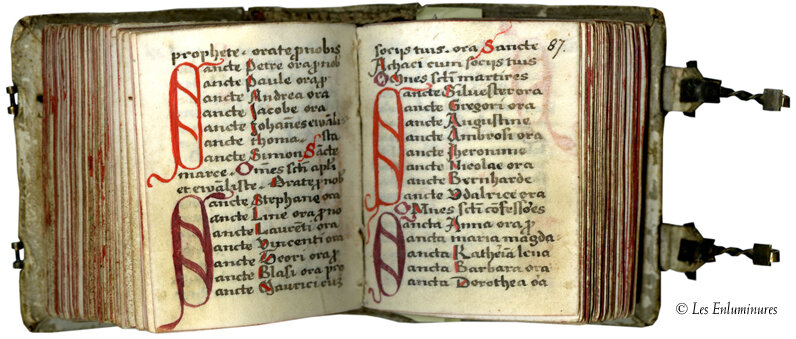 prophete · orate p nobis
Sancte Petre ora p nob
ancte Paule ora p
ancte Andrea ora
ancte Jacobe ora
ancte Johañes ewãli
ancte thoma · sta
ancte Simon Sãcte
marce · Om̃es scti apli
et ewãliste · Orate p nob
Sancte Stephane ora
ancte Line ora p no
ancte Laurẽti ora
ancte Vincenti ora
ancte Jeori ora p
ancte Blasi ora pro
ancte Maurici cũ
socijs tuis · ora Sancte
87.
Achaci cum socijs tuis
Om̃es scti martires
Sancte Siluester ora
ancte Gregori ora
ancte Augustine
ancte Ambrosi ora
ancte Iheronime
ancte Nicolae ora
ancte Bernharde
ancte Vdalrice ora
Om̃es scti cõfessões
Sancta Anna ora p
ancta maria magda
ancta Katheria lena
ancta Barbara ora
ancta Dorothea oa
© Les Enluminures